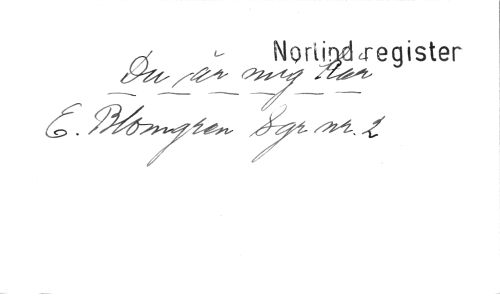 Norlind register
Du är mig kär
E. Blomgren Sgr nr. 2